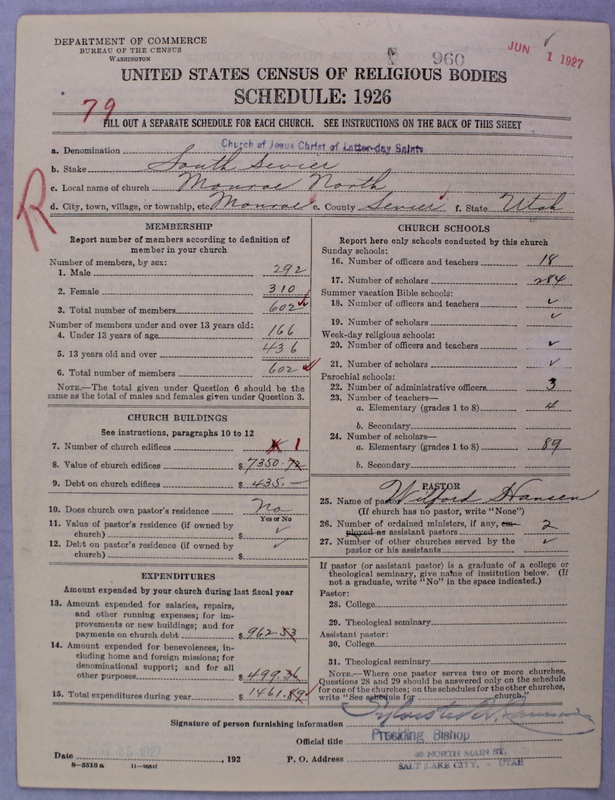 DEPARTMENT OF COMMERCE
BUREAU OF THE CENSUS
WASHINGTON
960
JUN 1 1927
UNITED STATES CENSUS OF RELIGIOUS BODIES
SCHEDULE: 1926
79
FILL OUT A SEPARATE SCHEDULE FOR EACH CHURCH. SEE INSTRUCTIONS ON THE BACK OF THIS SHEET
a. Denomination Church of Jesus Christ of Latter-day Saints
b. Stake South Sevier
c. Local name of church Monroe North
d. City, town, village, or township, etc. Monroe e. County Sevier f. State Utah
R
MEMBERSHIP
Report number of members according to definition of
member in your church
Number of members, by sex:
1. Male 292
2. Female 310
3. Total number of members 602
Number of members under and over 13 years old:
4. Under 13 years of age 166
5. 13 years old and over 436
6. Total number of members 602
NOTE.—The total given under Question 6 should be the
same as the total of males and females given under Question 3.
CHURCH BUILDINGS
See instructions, paragraphs 10 to 12
7. Number of church edifices 1
8. Value of church edifices $ 7350.72
9. Debt on church edifices $ 435.—
10. Does church own pastor's residence No
Yes or No
11. Value of pastor's residence (if owned by
church) $ ✓
12. Debt on pastor's residence (if owned by
church) $ ✓
EXPENDITURES
Amount expended by your church during last fiscal year
13. Amount expended for salaries, repairs,
and other running expenses; for im-
provements or new buildings; and for
payments on church debt $ 962.53
14. Amount expended for benevolences, in-
cluding home and foreign missions; for
denominational support; and for all
other purposes $ 499.36
15. Total expenditures during year $ 1461.89
CHURCH SCHOOLS
Report here only schools conducted by this church
Sunday schools:
16. Number of officers and teachers 18
17. Number of scholars 284
Summer vacation Bible schools:
18. Number of officers and teachers ✓
19. Number of scholars ✓
Week-day religious schools:
20. Number of officers and teachers ✓
21. Number of scholars ✓
Parochial schools:
22. Number of administrative officers 3
23. Number of teachers—
a. Elementary (grades 1 to 8) 4
b. Secondary
24. Number of scholars—
a. Elementary (grades 1 to 8) 89
b. Secondary
PASTOR
25. Name of pastor Wilford Hansen
(If church has no pastor, write "None")
26. Number of ordained ministers, if any, em-
ployed as assistant pastors 2
27. Number of other churches served by the
pastor or his assistants ✓
If pastor (or assistant pastor) is a graduate of a college or
theological seminary, give name of institution below. (If
not a graduate, write "No" in the space indicated.)
Pastor:
28. College
29. Theological seminary
Assistant pastor:
30. College
31. Theological seminary
NOTE.—Where one pastor serves two or more churches,
Questions 28 and 29 should be answered only on the schedule
for one of the churches; on the schedules for the other churches,
write "See schedule for church."
Signature of person furnishing information Sylvester Q. Cannon
Official title Presiding Bishop
Date 25 1927, 192 P. O. Address 40 NORTH MAIN ST.
SALT LAKE CITY, - UTAH
8-5518 a